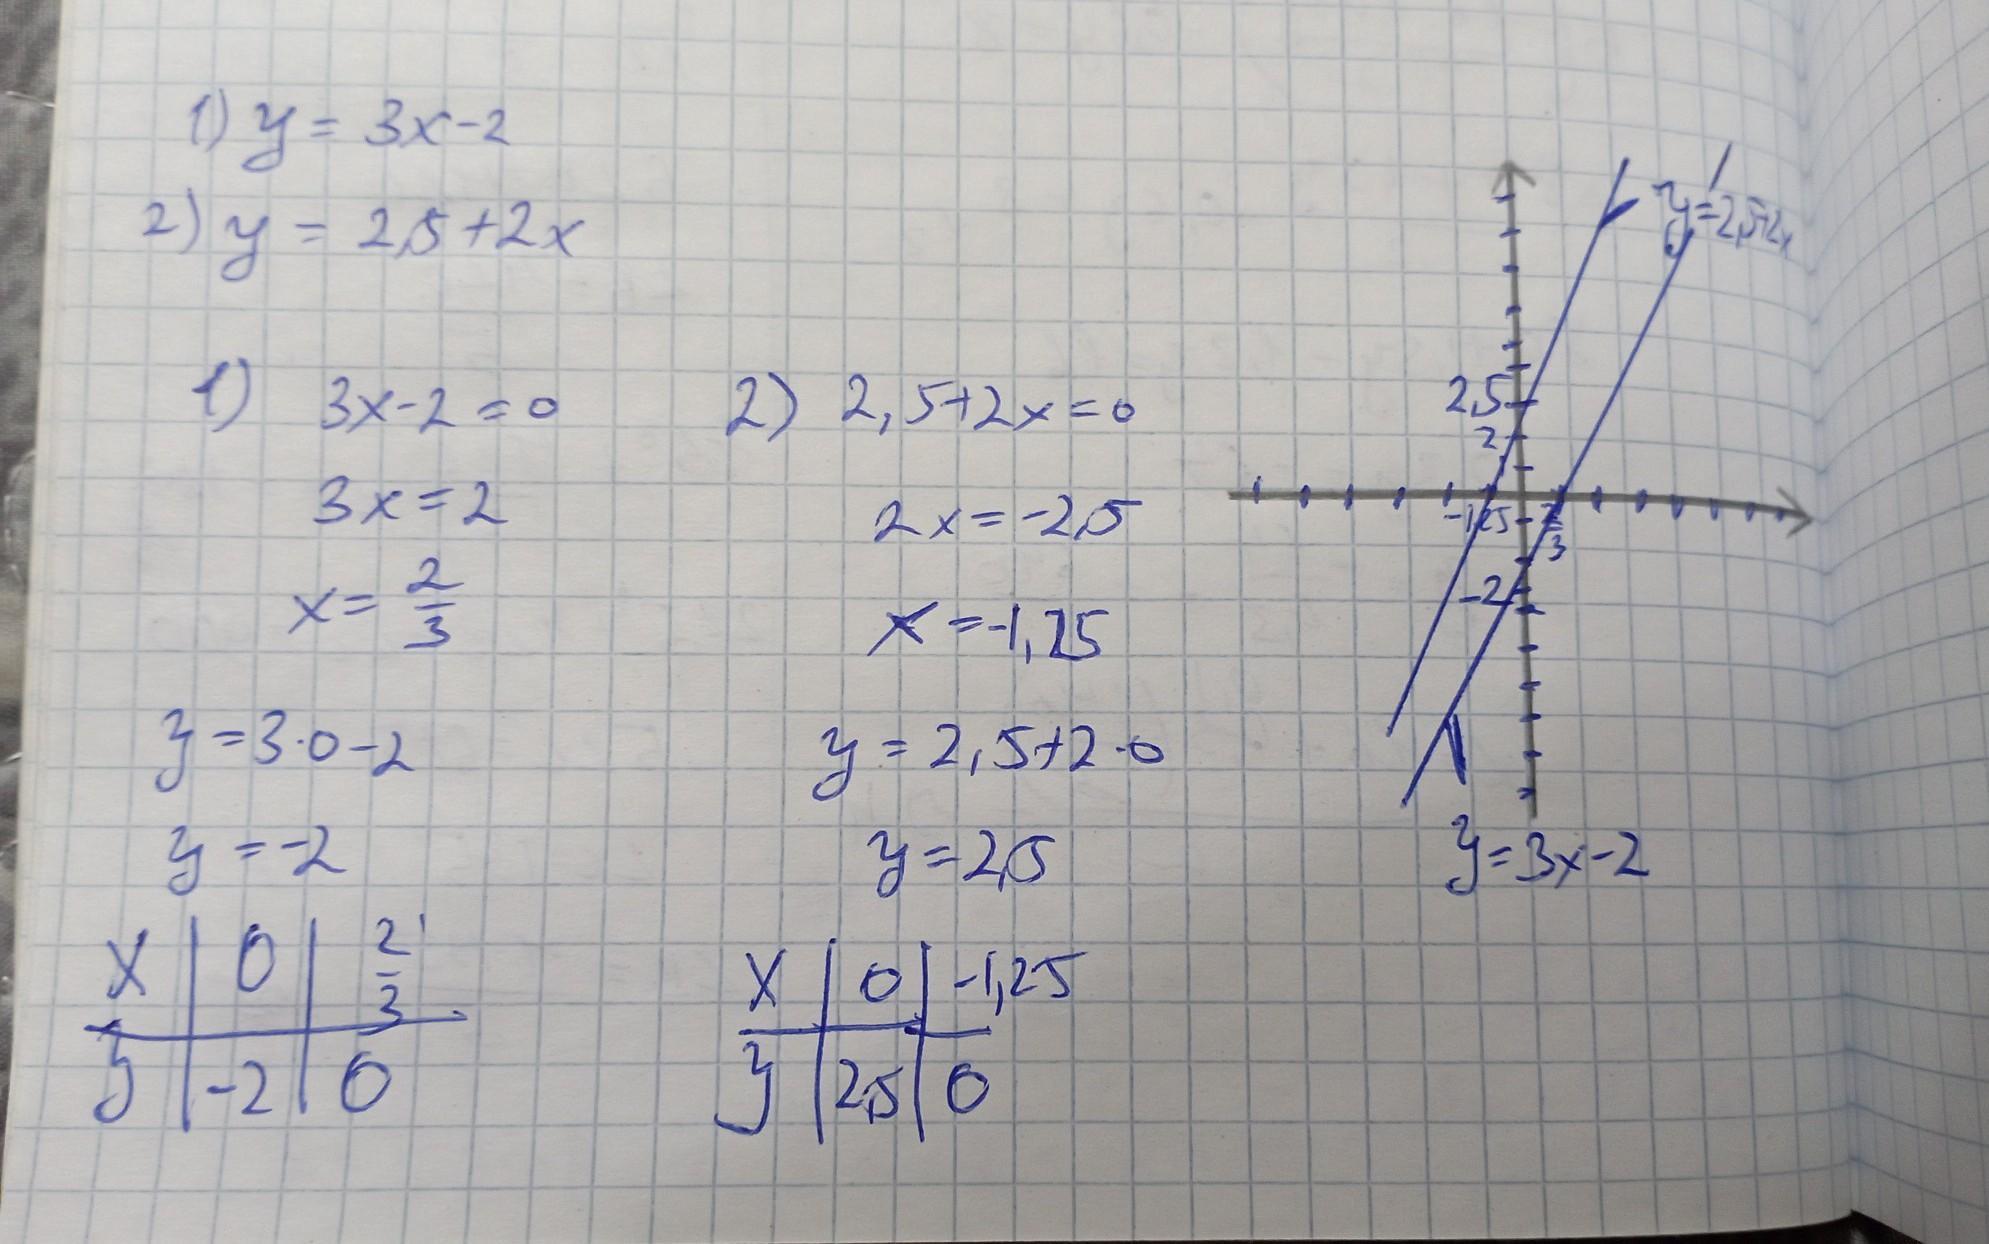 1) y = 3x-2
2) y = 2,5+2x
1) 3x-2=0
3x=2
x= 2/3
y=3·0-2
y=-2
x | 0 | 2/3
y | -2 | 0
2) 2,5+2x=0
2x=-2,5
x=-1,25
y=2,5+2·0
y=2,5
x | 0 | -1,25
y | 2,5 | 0
y=2,5+2x
2,5
2
-1,25
2/3
-2
y=3x-2